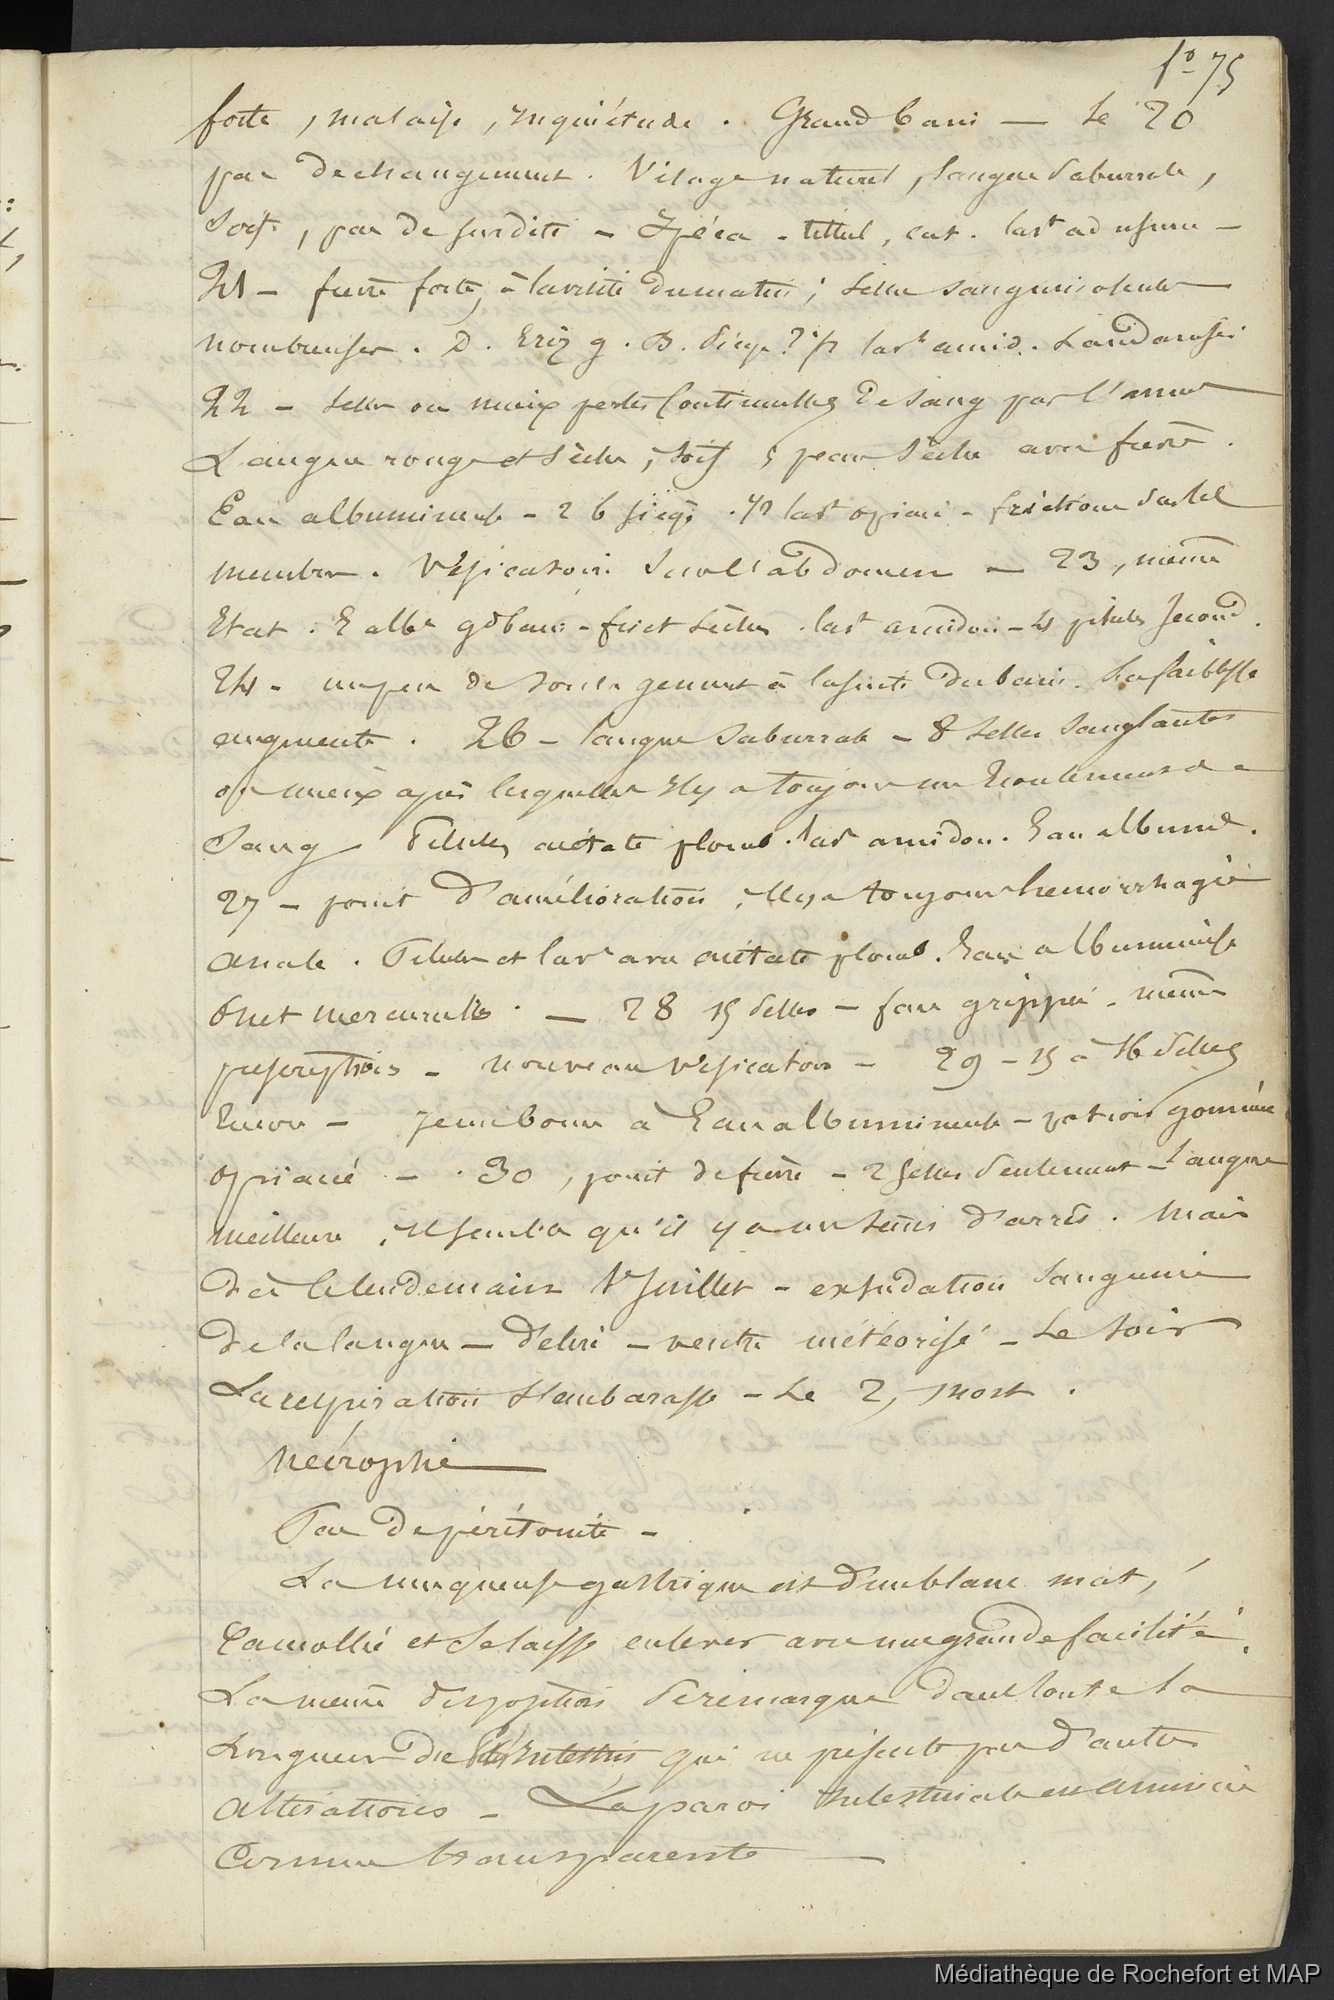 fo 75
forte, malaise, inquiétude. Grand bain — Le 20
pas de changement. Visage naturel, langue saburrale,
soif, pas de surdité - Ipéca - tilleul, cat. lavt ad usum -
21 - fièvre forte, à la visite du matin; selles sanguinolentes
nombreuses. D. Eriz g. B. siège 2 ½ lavt amid. Laudanisés
22 - selles ou mieux pertes continuelles de sang par l'anus
Langue rouge et sèche, soif, peau sèche avec fièvre.
Eau albumineuse - 2 b siège. ½ lavt opiacé - frictions sur les
membres. Vésicatoire sur l'abdomen — 23, même
Etat. E albe gd bain - frict sèches. lavt amidon - 4 pilules Second.
24 - un peu de soulagement à la suite du bain. La faiblesse
augmente. 26 - langue saburrale - 8 selles sanglantes
ou mieux après lesquelles il y a toujours un écoulement de
sang. Pilules acétate plomb. lavt amidon. Eau albumine.
27 - point d'amélioration, il y a toujours hémorrhagie
anale. Pilules et lavt avec acétate plomb. Eau albumineuse
Onct mercurielles. — 28 15 selles - face grippée - même
prescription - nouveau vésicatoire - 29 - 15 à 16 selles
Encore - Je me borne à Eau albumineuse - potion gommeuse
opiacée - 30, point de fièvre - 2 selles seulement - langue
meilleure, il semble qu'il y a un temps d'arrêt. Mais
dès le lendemain 1er Juillet - exsudation sanguine
de la langue - délire - ventre météorisé - Le soir
La respiration s'embarasse - Le 2, mort.
Nécropsie
Pas de péritonite -
La muqueuse gastrique est d'un blanc mat,
ramollie et se laisse enlever avec une grande facilité.
La même disposition se remarque dans toute la
Longueur des intestins, qui ne présente pas d'autres
altérations - La paroi intestinale est amincie
comme transparente —
Médiathèque de Rochefort et MAP